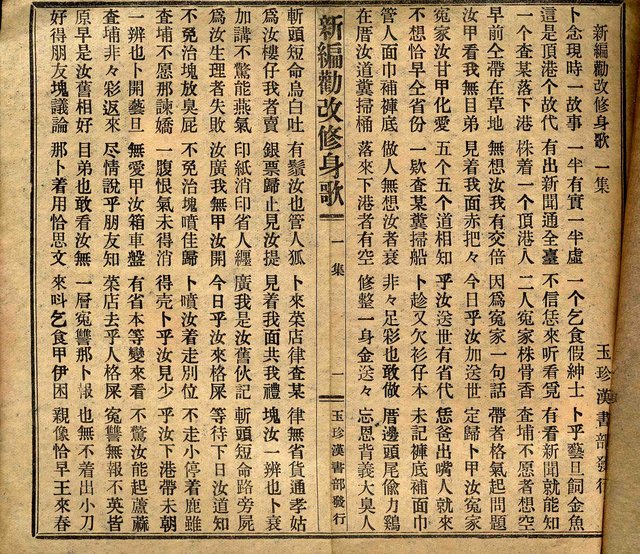 新編勸改修身歌 一集 玉珍漢書部發行
卜念現時一故事 一半有實一半虛 一个乞食假紳士 卜乎藝旦飼金魚
這是頂港个故代 有出新聞通全臺 不信恁來听看覓 有看新聞就能知
一个查某落下港 株着一个頂港人 二人冤家株骨香 查埔不愿者想空
早前仝帶在草地 無想汝我有交倍 因為冤家一句話 帶者格氣起問題
汝甲看我無目弟 見着我面赤把々 今日乎汝加送世 定歸卜甲汝冤家
冤家汝甘甲化愛 五个五个道相知 乎汝送世有省代 恁爸出嘴人就來
不想恰早仝省份 一欵查某糞掃船 卜趁又欠衫仔本 未記褲底補面巾
管人面巾補褲底 做人無想汝者衰 非々足彩也敢做 厝邊頭尾偷力鷄
在厝汝道糞掃桶 落來下港者有空 修整一身金送々 忘恩背義大臭人
新編勸改修身歌 一集 一 玉珍漢書部發行
斬頭短命烏白吐 有鬚汝也管人狐 卜來菜店律查某 律無省貨通孝姑
為汝樓仔我者賣 銀票歸止見汝提 見着我面共我禮 塊汝一辨也卜衰
加講不驚能燕氣 印紙消印省人纒 廣我是汝舊伙記 斬頭短命路旁屍
為汝生理者失敗 汝廣我無甲汝開 今日乎汝來格屎 等待下日汝道知
不免治塊放臭屁 不免治塊噴佳歸 卜噴汝着走別位 不走小停着鹿雖
查埔不愿那諫嬌 一腹恨氣未得消 得売卜乎汝見少 乎汝下港帶未朝
一辨也卜開藝旦 無愛甲汝箱車盤 有省本等變來看 不驚汝能起蘆藤
查埔非々彩返來 盡情說乎朋友知 菜店去乎人格屎 冤讐無報不英皆
原早是汝舊相好 目弟也敢看汝無 一層冤讐那卜報 也無不着出小刀
好得朋友塊議論 那卜着用恰思文 來呌乞食甲伊困 親像恰早王來春